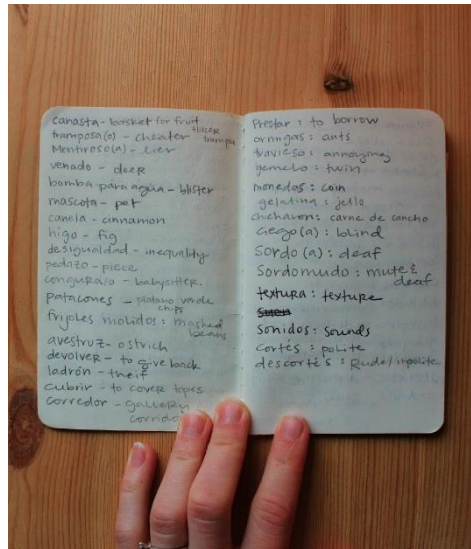 canasta - basket for fruit
tramposa(o) - cheater hacer trampa
Mentiroso(a) - lier
venado - deer
bomba para agua - blister
mascota - pet
canela - cinnamon
higo - fig
desigualdad - inequality
pedazo - piece
- babysitter.
patacones - platano verde
chips
frijoles molidos : mashed
beans
avestruz - ostrich
devolver - to give back
ladrón - theif
cubrir - to cover
corredor - gallery
corridor
Prestar : to borrow
ormigas : ants
travieso : annoying
gemelo : twin
monedas : coin
gelatina : jello
chicharon : carne de cancho
ciego(a) : blind
sordo (a) : deaf
Sordomudo : mute &
deaf
textura : texture
sonidos : sounds
cortés : polite
descortés : Rude/inpolite